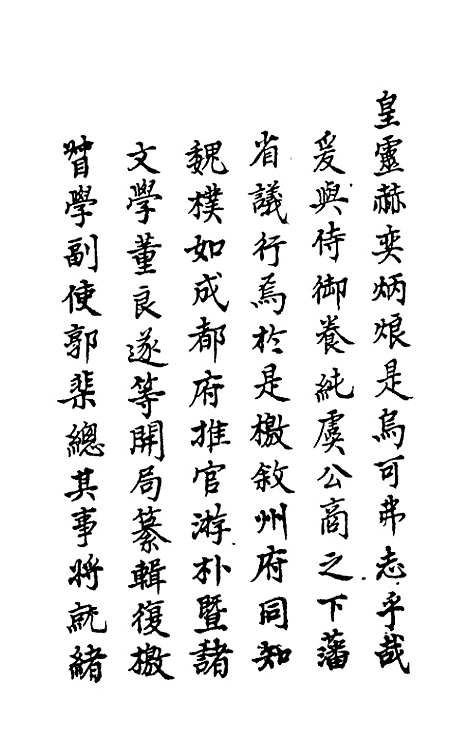 皇靈赫奕炳烺是烏可弗志乎哉
爰與侍御養純虞公商之下藩
省議行焉於是檄敘州府同知
魏樸如成都府推官游朴暨諸
文學董良遂等開局纂輯復檄
督學副使郭棐總其事將就緒